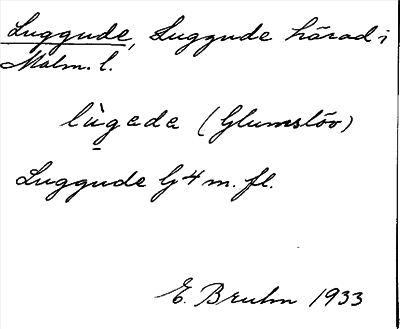 Luggude, Luggude härad i
Malm. l.
lùgede (Glumslöv)
Luggude G 4 m. fl.
E. Bruhn 1933